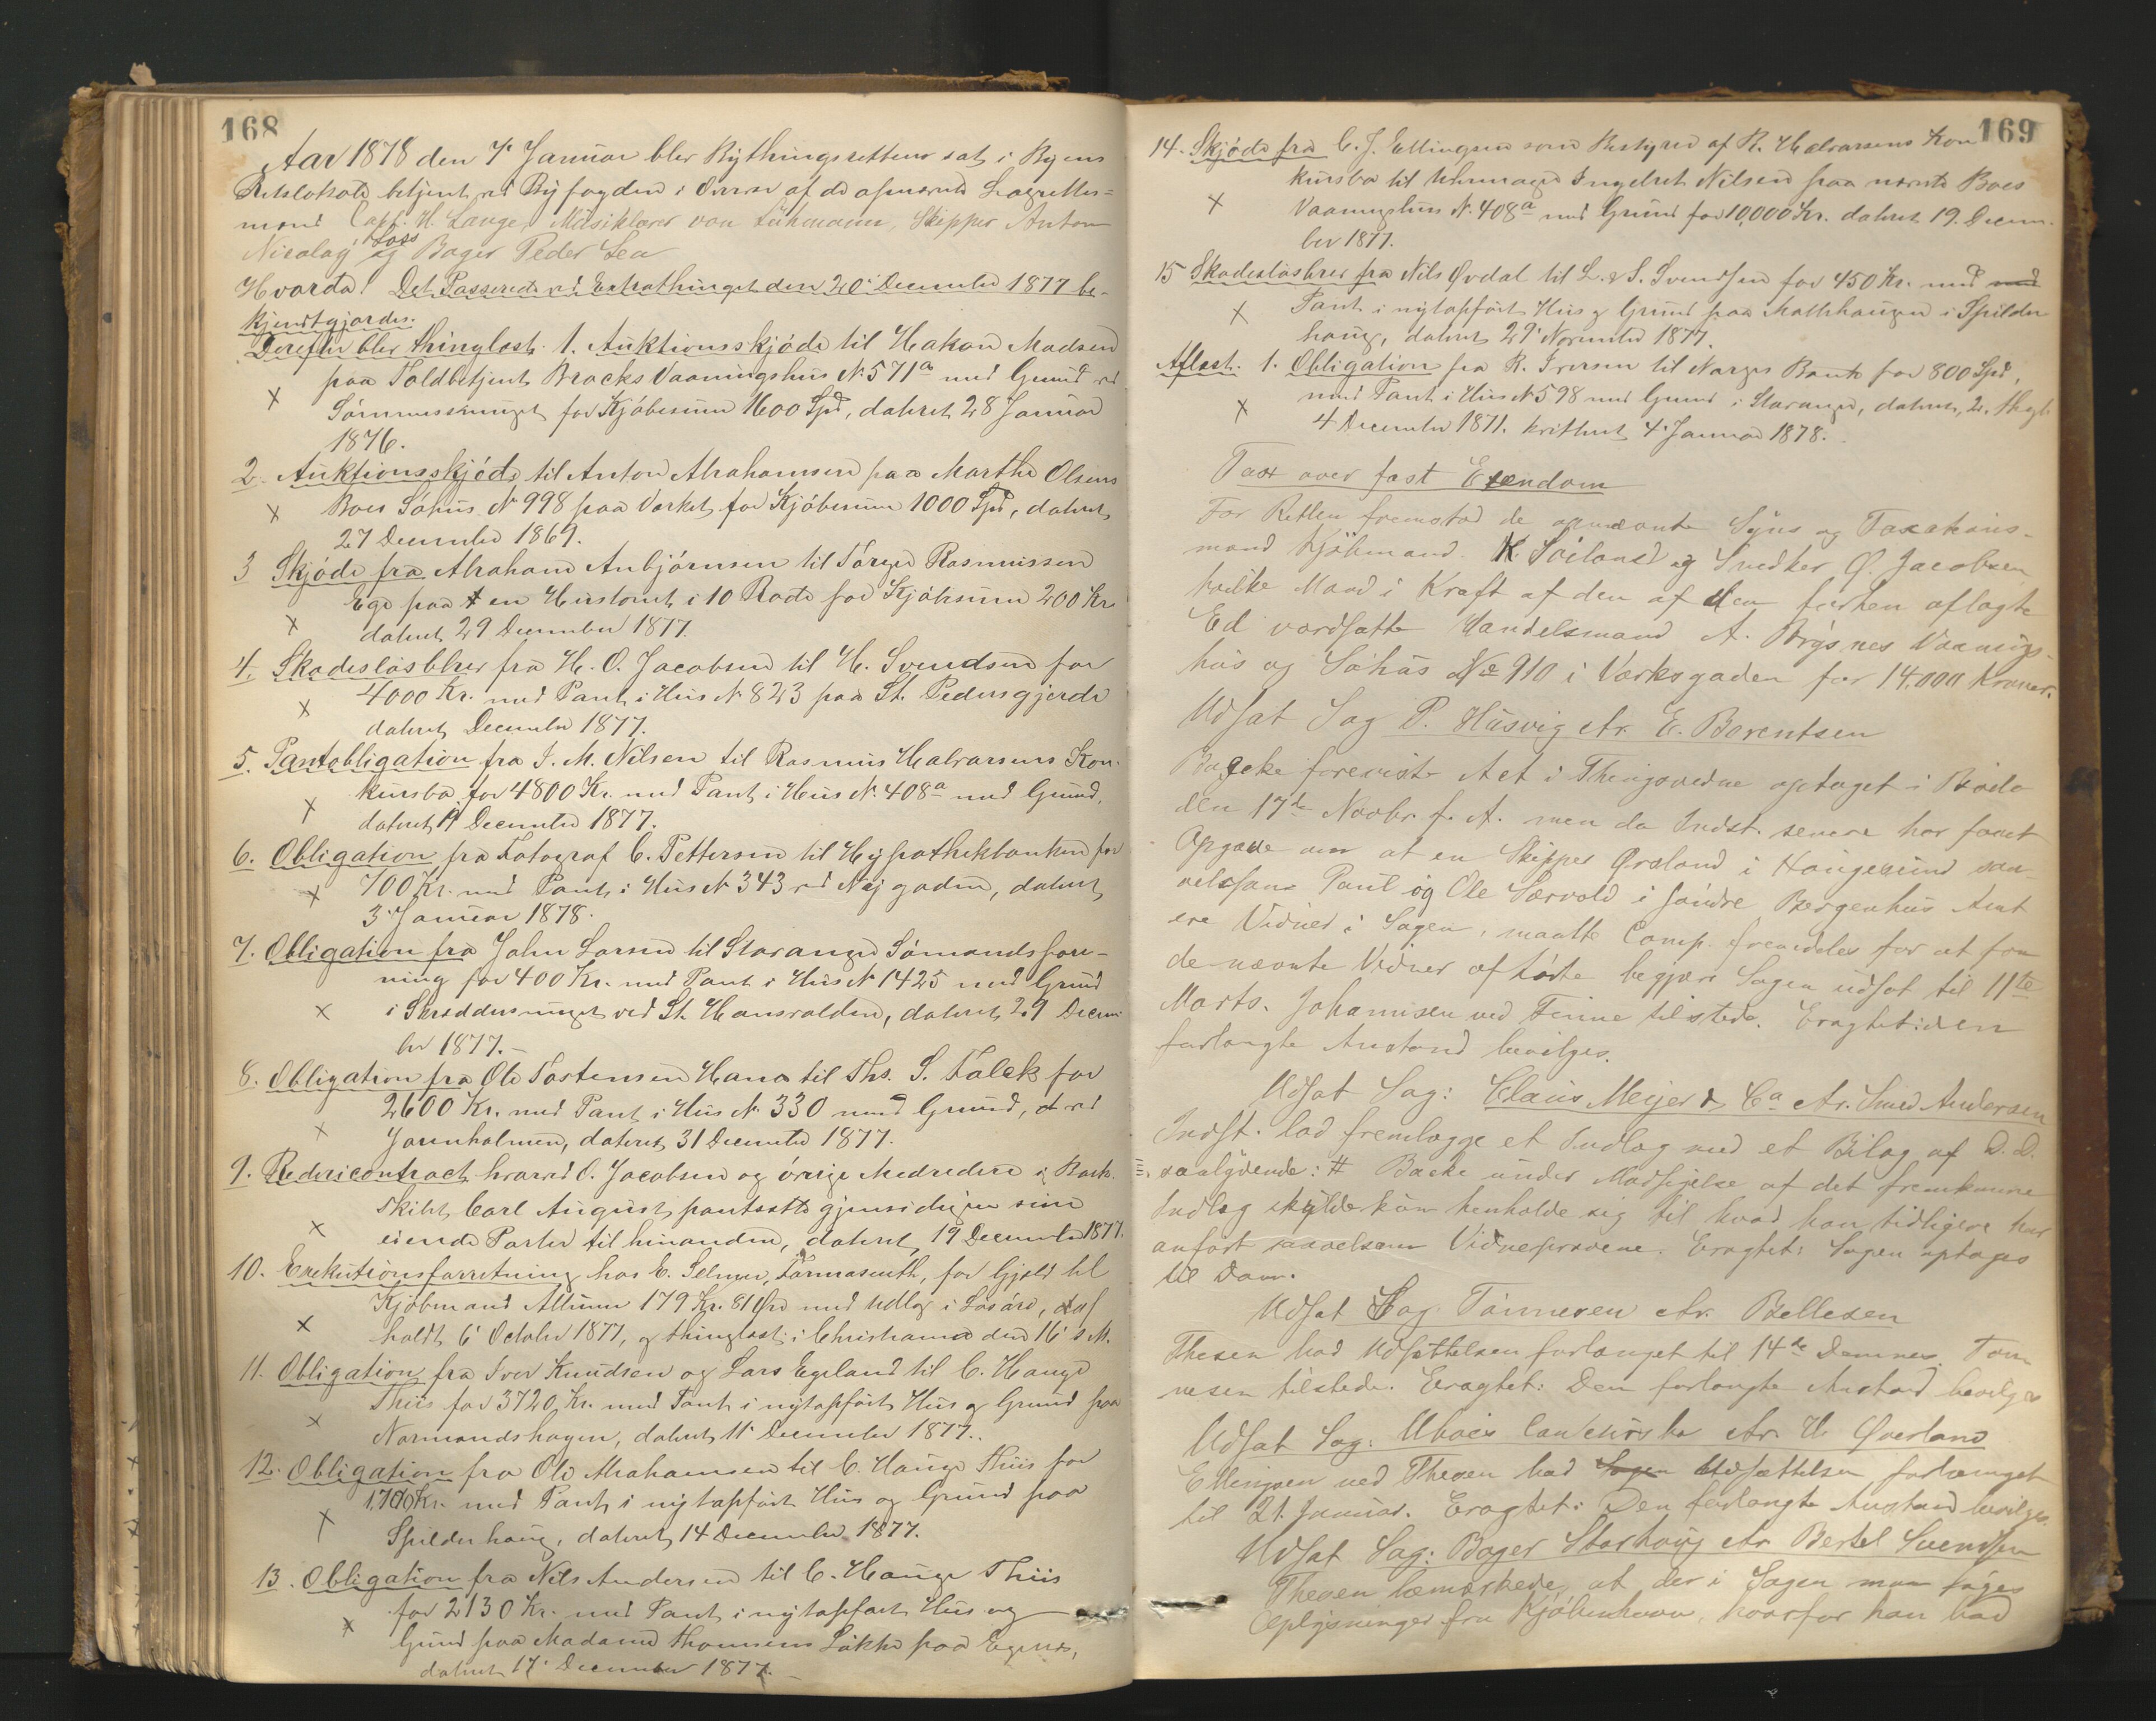 168
Aar 1878 den 7' Januar blev Bythingsretten sat i Byens
Retslokale betjent ved Byfogden i Overvær af de opnævnte Lagrettes=
mænd Capt. H. Lange, Musiklærer von Lühmann, Skipper Anton
Nicolay Loss og Bager Peder Lea
Hvorda! Det Passerede ved Extrathinget den 20' December 1877 be-
kjendtgjordes.
Derefter blev thinglæst. 1. Auktionsskjöde til Hakon Madsen
paa Toldbetjent Brocks Vaaningshus No 571a med Grund ved
for Kjöbesum 1600 Spd, dateret 28 Januar
1876.
2. Auktionsskjöde til Anton Abrahamsen paa Marthe Olsens
Boes Söhus No 998 paa Værket for Kjöbesum 1000 Spd, dateret
27 December 1869.
3 Skjöde fra Abraham Anbjörnsen til Törger Rasmussen
Ege paa en Hustomt i 10 Rode for Kjöbesum 200 Kr.
dateret 29 December 1877.
4. Skadeslösbrev fra H. O. Jacobsen til H. Svendsen for
4000 Kr. med Pant i Hus No 823 paa St. Pedersgjerde
dateret December 1877.
5. Pantobligation fra J. M. Nilsen til Rasmus Halvorsens Kon-
kursbo for 4800 Kr. med Pant i Hus No. 408a med Grund,
dateret 19 December 1877.
6. Obligation fra Fotograf C. Pettersen til Hypothekbanken for
700 Kr. med Pant i Hus No 343 ved Nygaden, dateret
3' Januar 1878.
7. Obligation fra John Larsen til Stavanger Sömandsfore-
ning for 400 Kr. med Pant i Hus No 1425 med Grund
i ved St. Hansvolden, dateret 29 Decem-
ber 1877.-
8. Obligation fra Ole Tostensen Hana til Ths. S. Falck for
2600 Kr. med Pant i Hus No. 330 med Grund, ved
Jorenholmen, dateret 31 December 1877.
9. Redericontract hvorved O. Jacobsen og övrige Medredere i Bark-
skibet Carl August pantsatte gjensidigen sine
eiende Parter til hinanden, dateret 19 December 1877.
10. Exekutionsforretning hos E. Selmer, Farmasuth, for Gjæld til
Kjöbmand Allum 179 Kr. 81 Öre med Udlæg i Lösöre, af
holdt 6' October 1877, og thinglæst i Christiania den 16' s. M.
11. Obligation fra Iver Knudsen og Lars Egeland til C. Hauge
Thiis for 3720 Kr. med Pant i nyopfört Hus og Grund paa
Normandshagen, dateret 11' December 1877.
12. Obligation fra Ole Abrahamsen til C. Hauge Thiis for
1700 Kr. med Pant i nyopfört Hus og Grund paa
Spilderhaug, dateret 14 December 1877.
13. Obligation fra Nils Andersen til C. Hauge Thiis
for 2130 Kr. med Pant i nyopfört Hus og
Grund paa Madame Thomsens Lökke paa Egenes,
dateret 17' December 1877.-
169
14. Skjöde fra C. J. Ellingsen som Bestyrer af R. Halvorsens Kon
kursbo til Uhrmager Ingebret Nilsen paa nævnte Boes
Vaaningshus No. 408a med Grund for 10,000 Kr. dateret 19. Decem-
ber 1877.
15 Skadeslösbrev fra Nils Qvdal til L. & S. Svendsen for 450 Kr. med
Pant i nyopfört Hus og Grund paa i Spilder
haug, dateret 29' November 1877.
Aflæst. 1. Obligation fra R. Iversen til Norges Bank for 800 Spd,
med Pant i Hus No 598 med Grund i Stavanger, dateret 2. thgl.
4 December 1871. kvitteret 4' Januar 1878.
Taxt over fast Eiendom
For Retten fremstod de opnævnte Syns og Taxations-
mænd Kjöbmand K. Söiland og Snedker Ö. Jacobsen
hvilke Mænd i Kraft af den af dem forhen aflagte
Ed værdsatte Handelsmand A. Brysnes Vaanings-
hus og Söhus No 910 i Værksgaden for 14,000 Kroner.
Udsat Sag P. Husvig ctr. E. Berentsen
Backe foreviste Act i Thingsvidne optaget i Bodö
den 17de Novbr. f. A. men da Indst. senere har faaet
Opgave om at en Skipper Örsland i Haugesund saa-
velsom Paul og Ole Særvold i söndre Bergenhus Amt
ere Vidner i Sagen, maatte Comp. fremdeles for at faa
de nævnte Vidner afhörte begjære Sagen udsat til 11te
Marts. Johannisen ved Finne tilstede. Eragtet: den
forlangte Anstand bevilges.
Udsat Sag: Claus Meijer & Ca ctr. Smed Andersen
Indst. lod fremlægge et Indlæg med et Bilag af D. D.
saalydende: # Backe under Modsigelse af det fremkomne
Indlæg skulde kun henholde sig til hvad han tidligere har
anfört saavelsom Vidneprovene. Eragtet: Sagen optages
til Dom.
Udsat Sag Tönnesen ctr. Bellesen
Thesen bad Udsættelsen forlænget til 14de Dennes. Tön
nesen tilstede. Eragtet: Den forlangte Anstand bevilges
Udsat Sag: ctr. H. Qverland
Ellingsen ved Thesen bad Udsættelsen forlænget
til 21. Januar. Eragtet: Den forlangte Anstand bevilges.
Udsat Sag: Bager Storhaug ctr Bertel Svendsen
Thesen bemærkede, at der i Sagen maa söges
Oplysninger fra Kjöbenhavn, hvorfor han bad